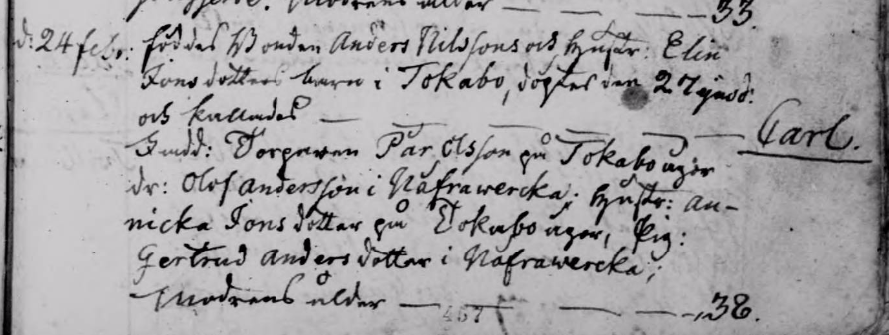 Modrens ålder — — — 33
d: 24 febr: föddes Bonden Anders Nilssons och Hustr: Elin
Jonsdotters barn i Tokabo, döptes den 27 ejusd:
och kallades — — — — — Carl.
Fadd: Torparen Pär Olsson på Tokabo ägor
dr: Olof Andersson i Näfrawercka; Hustr: An-
nicka Jonsdotter på Tokabo ägor, Pig:
Gertrud Andersdotter i Näfrawercka;
Modrens ålder — — — 38.
467